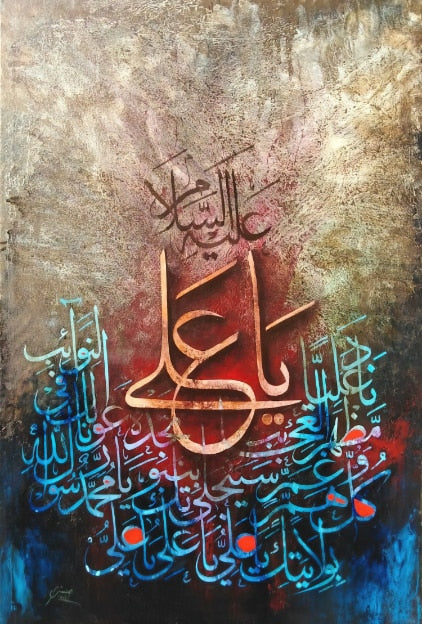 عَلَيْهِ السَّلَام
يَا عَلي
نَادِ عَلِيًّا مَظْهَرَ العَجَائِب تَجِدهُ عَونًا لَكَ فِي النَوَائِب
كُلُّ هَمٍّ وَغَمٍّ سَيَنْجَلِي بِنُبُوَّتِكَ يَا مُحَمَّدُ رَسُولَ اللهِ
بِوِلَايَتِكَ يَا عَلِيُّ يَا عَلِيُّ يَا عَلِيُّ